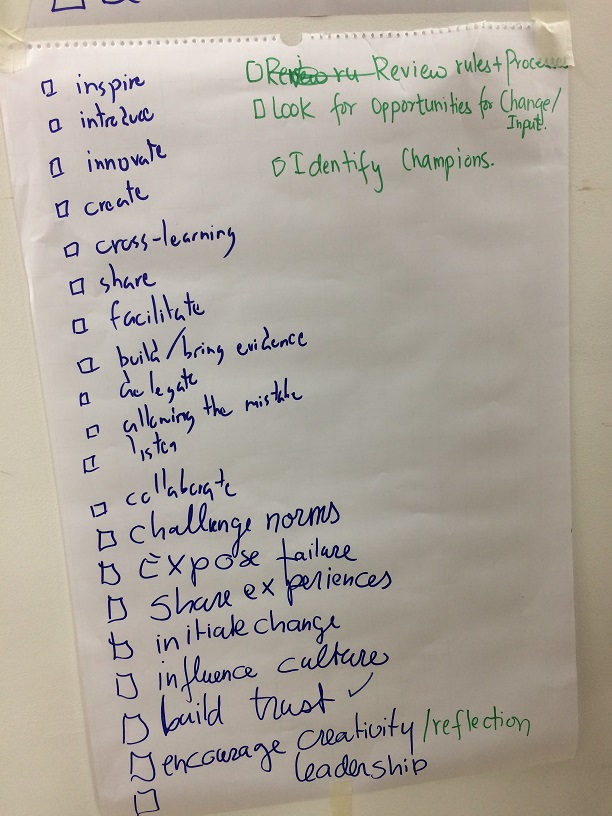 inspire
introduce
innovate
create
cross-learning
share
facilitate
build/bring evidence
delegate
allowing the mistake
listen
collaborate
challenge norms
Expose failure
Share experiences
initiate change
influence culture
build trust ✓
encourage creativity/reflection
leadership
Review rules + Processes
Look for Opportunities for Change/
Input.
Identify Champions.